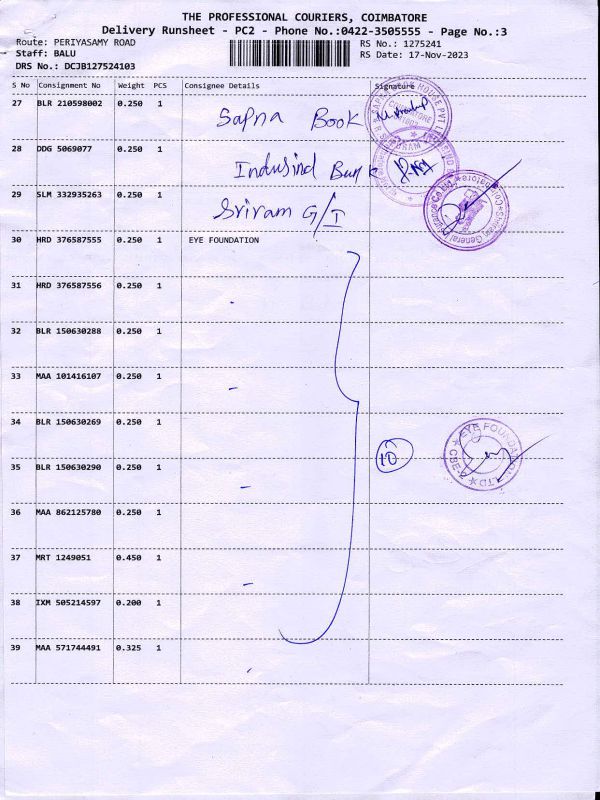 THE PROFESSIONAL COURIERS, COIMBATORE
Delivery Runsheet - PC2 - Phone No.:0422-3505555 - Page No.:3
Route: PERIYASAMY ROAD RS No.: 1275241
Staff: BALU RS Date: 17-Nov-2023
DRS No.: DCJB127524103
S No Consignment No Weight PCS Consignee Details Signature
27 BLR 210598002 0.250 1 Sapna Book
28 DDG 5069077 0.250 1 Indusind Bank
29 SLM 332935263 0.250 1 Sriram G/I
30 HRD 376587555 0.250 1 EYE FOUNDATION
31 HRD 376587556 0.250 1
32 BLR 150630288 0.250 1
33 MAA 101416107 0.250 1
34 BLR 150630269 0.250 1
EYE FOUNDATION LTD CBE-
35 BLR 150630290 0.250 1 10
36 MAA 862125780 0.250 1
37 MRT 1249051 0.450 1
38 IXM 505214597 0.200 1
39 MAA 571744491 0.325 1